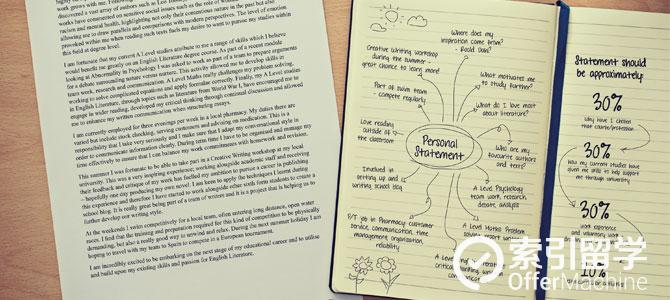 discovered a vast array of authors such as Leo
works have commented on sensitive social issues such as the role of women,
racism and mental health, highlighting not only their conscientious in the past but also
allowing me to draw parallels and comparisons with modern perspectives. The level of emotion
provoked within me when reading such texts fuels my desire to want to pursue my studies within
this field at degree level.
I am fortunate that my current A Level studies attribute to me a range of skills which I believe
would benefit me greatly on an English Literature degree course. As part of a recent module
looking at Abnormality in Psychology I was asked to work as part of a team to prepare arguments
for a debate surrounding nature versus nurture. This activity allowed me to develop skills in
team work, research and communication. A Level Maths really challenges my problem solving,
working to solve complicated equations and apply formulae correctly. Finally, my A Level studies
in English Literature, through topics such as literature from World War I, have encouraged me to
engage in wider reading, developed my critical thinking through continual discussion and allowed
me to enhance my written communication when structuring essays.
I am currently employed for three evenings per week in a local pharmacy. My duties there are
varied but include stock checking, serving customers and advising on medication. This is a
responsibility that I take very seriously and I make sure that I adapt my conversational style in
order to communicate information clearly. During term time I have to be organised and manage my
time effectively to ensure that I can balance my work commitments with homework and revision.
This summer I was fortunate to be able to take part in a Creative Writing workshop at my local
university. This was a very inspiring experience; working alongside academic staff and receiving
the feedback and critique of my work has fuelled my ambition to pursue a career in publishing
– hopefully one day producing my own novel. I am keen to apply the techniques I learnt during
this experience and therefore I have started to work alongside other sixth form students to create a
school blog. It is really great being part of a team of writers and it is a project that is helping us to
further develop our writing style.
At the weekends I swim competitively for a local team, often entering long distance, open water
races. I find that the training and preparation required for this kind of competition to be physically
demanding, but also a really good way to unwind and relax. During the next summer holiday I am
hoping to travel with my team to Spain to compete in a European tournament.
I am incredibly excited to be embarking on the next stage of my educational career and to utilise
and build upon my existing skills and passion for English Literature.
Where does my
inspiration come from?
- Roald Dahl?
Creative Writing workshop
during the summer -
great chance to learn more!
What motivates me
to study further?
Part of swim team
- compete regularly
What do I love most
about literature?
Love reading
outside of
the classroom
Personal
Statement
Who are my
favourite authors
and texts?
Involved in
setting up and
writing school blog
A Level Psychology
team work, research
debate, analysis
P/T job in Pharmacy customer
service, communication, time
management, organisation,
reliability
A Level Maths Problem
Statement should
be approximately:
30%
Why have I chosen
that course/profession
30%
How my current studies have
given me skills to help support
me through university
30%
work experience
and voluntary work
10%
索引留学
OfferMachine